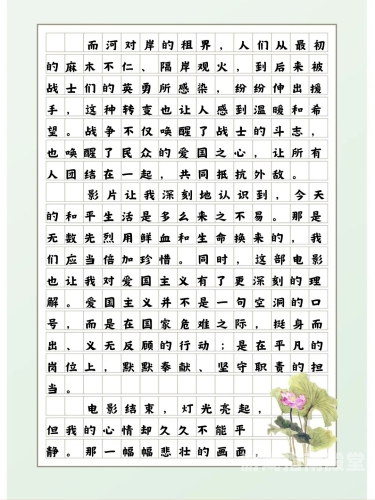 而河对岸的租界，人们从最初
的麻木不仁、隔岸观火，到后来被
战士们的英勇所感染，纷纷伸出援
手，这种转变也让人感到温暖和希
望。战争不仅唤醒了战士的斗志，
也唤醒了民众的爱国之心，让所有
人团结在一起，共同抵抗外敌。
影片让我深刻地认识到，今天
的和平生活是多么来之不易。那是
无数先烈用鲜血和生命换来的，我
们应当倍加珍惜。同时，这部电影
也让我对爱国主义有了更深刻的理
解。爱国主义并不是一句空洞的口
号，而是在国家危难之际，挺身而
出、义无反顾的行动；是在平凡的
岗位上，默默奉献、坚守职责的担
当。
电影结束，灯光亮起，
但我的心情却久久不能平
静。那一幅幅悲壮的画面，